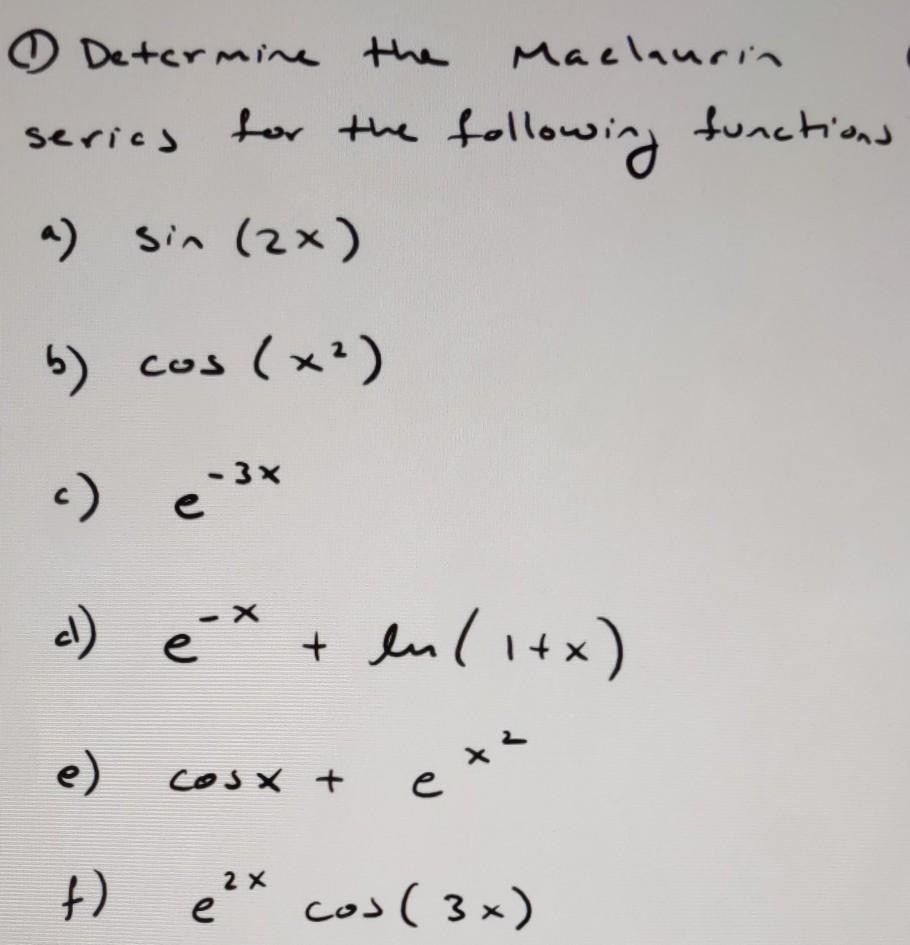 ① Determine the Maclaurin
series for the following functions
a) sin (2x)
b) cos (x²)
c) e⁻³ˣ
d) e⁻ˣ + ln(1+x)
e) cosx + eˣ²
f) e²ˣ cos(3x)